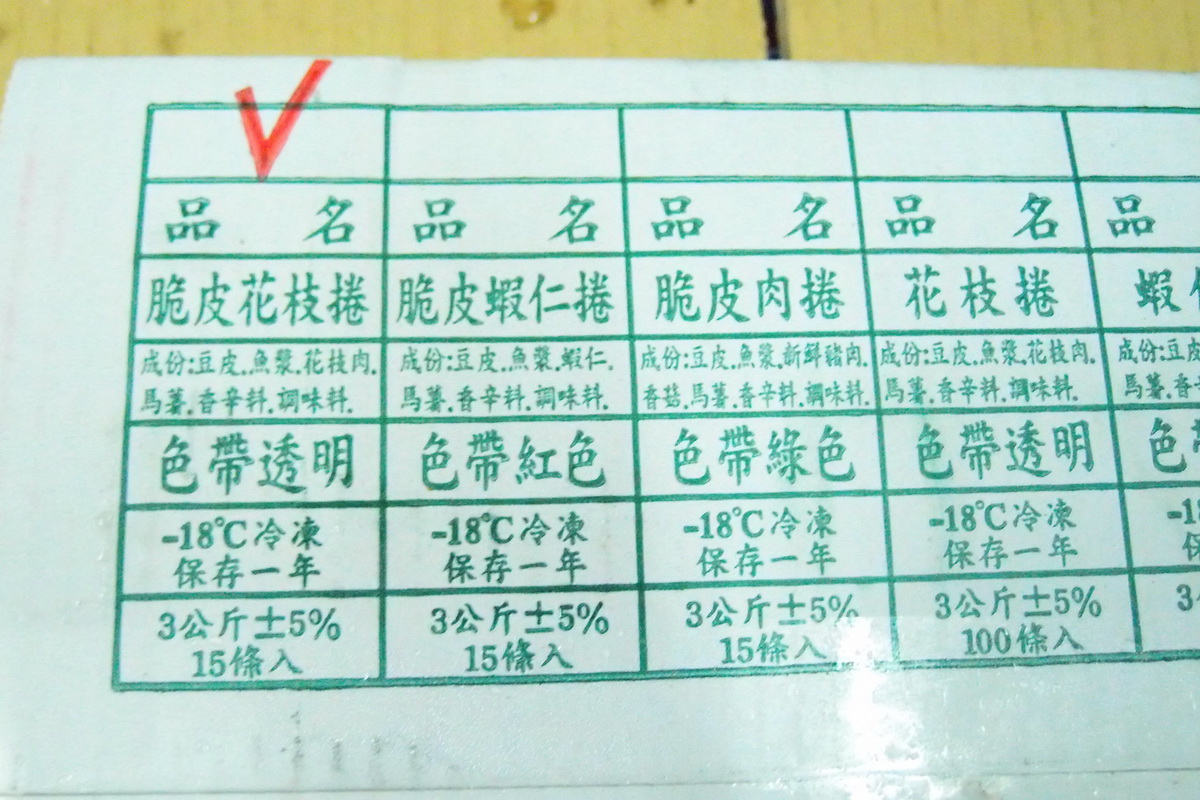 品名 品名 品名 品名 品
脆皮花枝捲 脆皮蝦仁捲 脆皮肉捲 花枝捲 蝦
成份:豆皮.魚漿.花枝肉. 成份:豆皮.魚漿.蝦仁. 成份:豆皮.魚漿.新鮮豬肉. 成份:豆皮.魚漿.花枝肉. 成份:豆皮
馬薯.香辛料.調味料. 馬薯.香辛料.調味料. 香菇.馬薯.香辛料.調味料. 馬薯.香辛料.調味料. 馬薯.香
色帶透明 色帶紅色 色帶綠色 色帶透明 色
-18℃冷凍 -18℃冷凍 -18℃冷凍 -18℃冷凍 -1
保存一年 保存一年 保存一年 保存一年
3公斤±5% 3公斤±5% 3公斤±5% 3公斤±5% 3
15條入 15條入 15條入 100條入